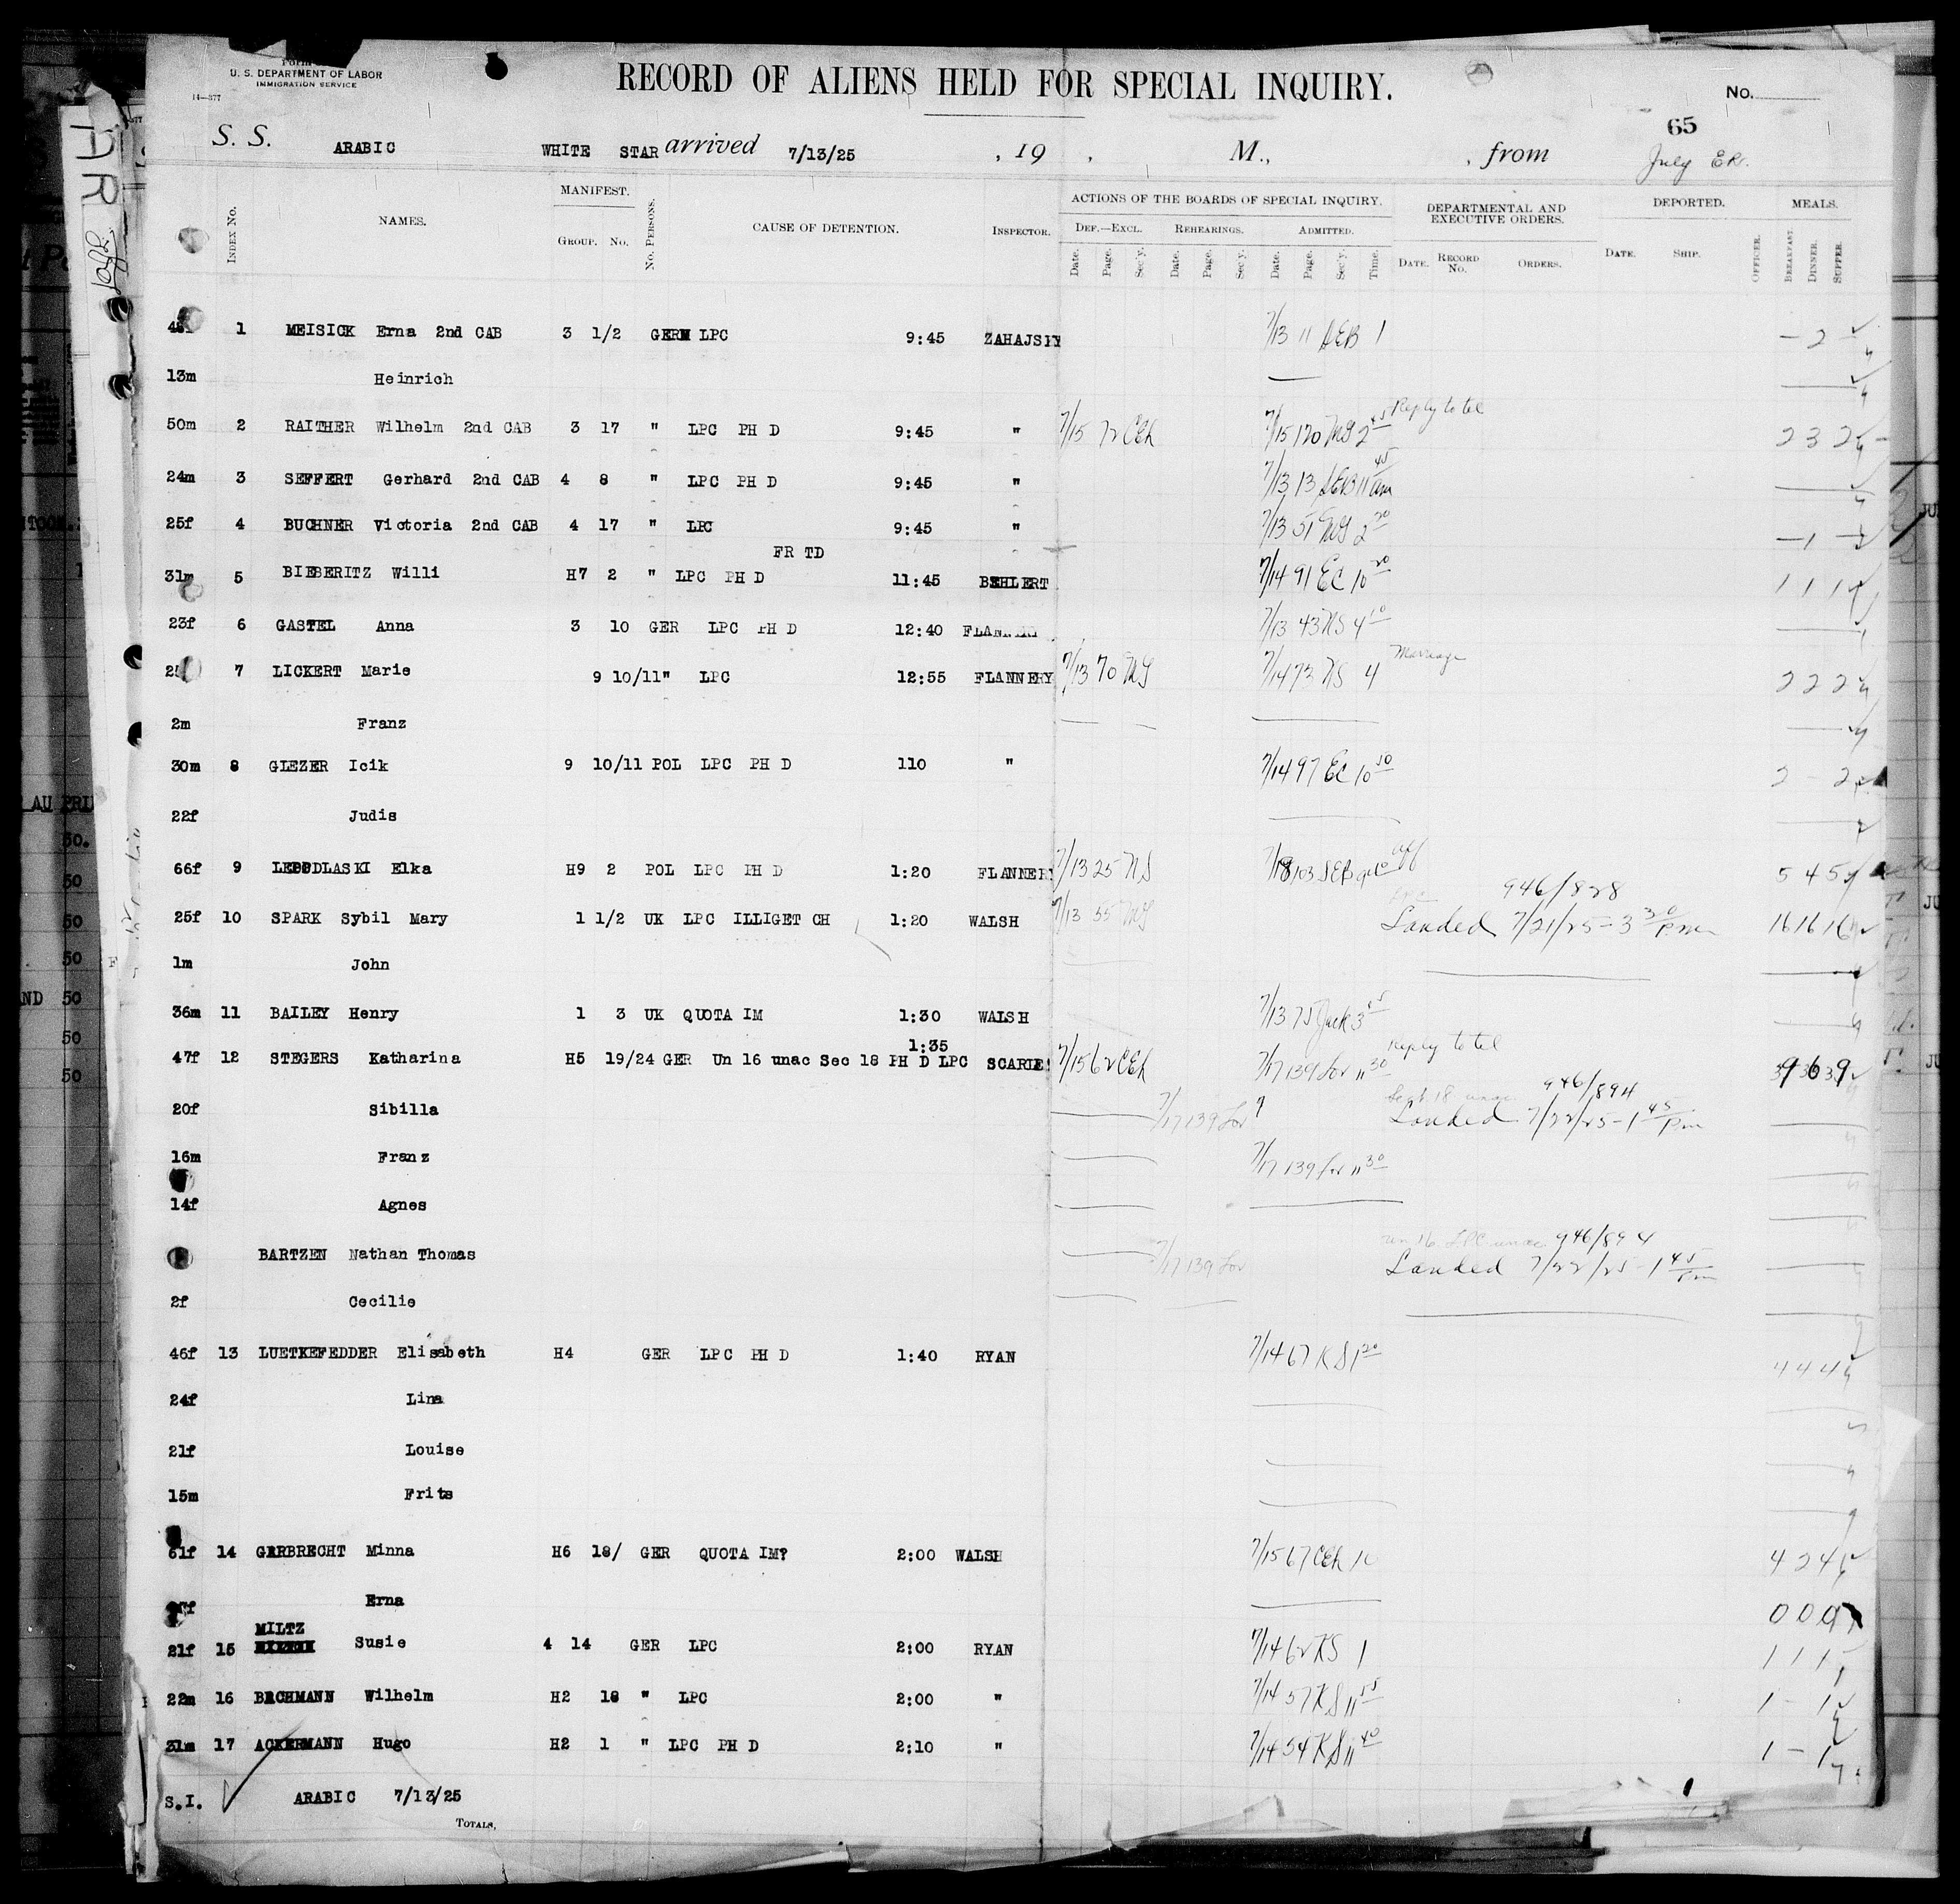 U. S. DEPARTMENT OF LABOR
IMMIGRATION SERVICE
14—377
RECORD OF ALIENS HELD FOR SPECIAL INQUIRY.
No.
65
S. S. ARABIC WHITE STAR arrived 7/13/25 , 19 , M., , from July
INDEX No. NAMES. MANIFEST. GROUP. No. No. PERSONS. CAUSE OF DETENTION. INSPECTOR. ACTIONS OF THE BOARDS OF SPECIAL INQUIRY. DEPARTMENTAL AND EXECUTIVE ORDERS. DEPORTED. MEALS.
DEF.—EXCL. REHEARINGS. ADMITTED.
Date. Page. Sec'y. Date. Page. Sec'y. Date. Page. Sec'y. Time. DATE. RECORD No. ORDERS. DATE. SHIP. OFFICER. BREAKFAST. DINNER. SUPPER.
1 MEISICK Erna 2nd CAB 3 1/2 GERM LPC 9:45 7/13 11 SEB 1 — 2
13m Heinrich
Reply to tel
50m 2 RAITHER Wilhelm 2nd CAB 3 17 " LPC PH D 9:45 " 7/15 72 CEh 7/15 120 2 45 2 3 2
24m 3 SEFFERT Gerhard 2nd CAB 4 8 " LPC PH D 9:45 " 7/13 13 SEB 11 45 am
25f 4 BUCHNER Victoria 2nd CAB 4 17 " LPC 9:45 " 7/13 51 2 30 — 1
FR TD
31m 5 BIEBERITZ Willi H7 2 " LPC PH D 11:45 BEHLERT 7/14 91 EC 10 20 1 1 1
23f 6 GASTEL Anna 3 10 GER LPC PH D 12:40 7/13 43 NS 4 10
Marriage
7 LICKERT Marie 9 10/11 " LPC 12:55 FLANNERY 7/13 70 7/14 73 NS 4 2 2 2
2m Franz
30m 8 GLEZER Icik 9 10/11 POL LPC PH D 110 " 7/14 97 EC 10 50 2 - 2
22f Judis
66f 9 Elka H9 2 POL LPC PH D 1:20 FLANNER 7/13 25 NS 7/18 103 SEB 5 4 5
946/828
25f 10 SPARK Sybil Mary 1 1/2 UK LPC ILLIGET CH 1:20 WALSH 7/13 55 Landed 7/21/25 – 3 30 pm 16 16 16
1m John
36m 11 BAILEY Henry 1 3 UK QUOTA IM 1:30 WALSH 7/13 75
1:35 Reply to tel
47f 12 STEGERS Katharina H5 19/24 GER Un 16 unac Sec 18 PH D LPC SCARLE 7/15 62 CEh 7/17 139 for 11 30 9 6 9
946/894
20f Sibilla 7/17 139 for Landed 7/22/25 – 1 45 pm
16m Franz 7/17 139 for 11 30
14f Agnes
un 16 LPC unac 946/894
BARTZEN Nathan Thomas 7/17 139 for Landed 7/22/25 – 1 45 pm
2f Cecilie
46f 13 LUETKEFEDDER Elisabeth H4 GER LPC PH D 1:40 RYAN 7/14 67 KS 1 20 4 4 4
24f Lina
21f Louise
15m Frits
61f 14 GERBRECHT Minna H6 18/ GER QUOTA IM? 2:00 WALSH 7/15 67 CEh 10 4 2 4
Erna 0 0 0
MILTZ
21f 15 Susie 4 14 GER LPC 2:00 RYAN 7/14 62 KS 1 1 1 1
22m 16 BACHMANN Wilhelm H2 18 " LPC 2:00 " 7/14 57 KS 11 55 1 – 1
31m 17 ACKERMANN Hugo H2 1 " LPC PH D 2:10 " 7/14 54 KS 11 40 1 – 1
S.I. ARABIC 7/13/25
TOTALS,